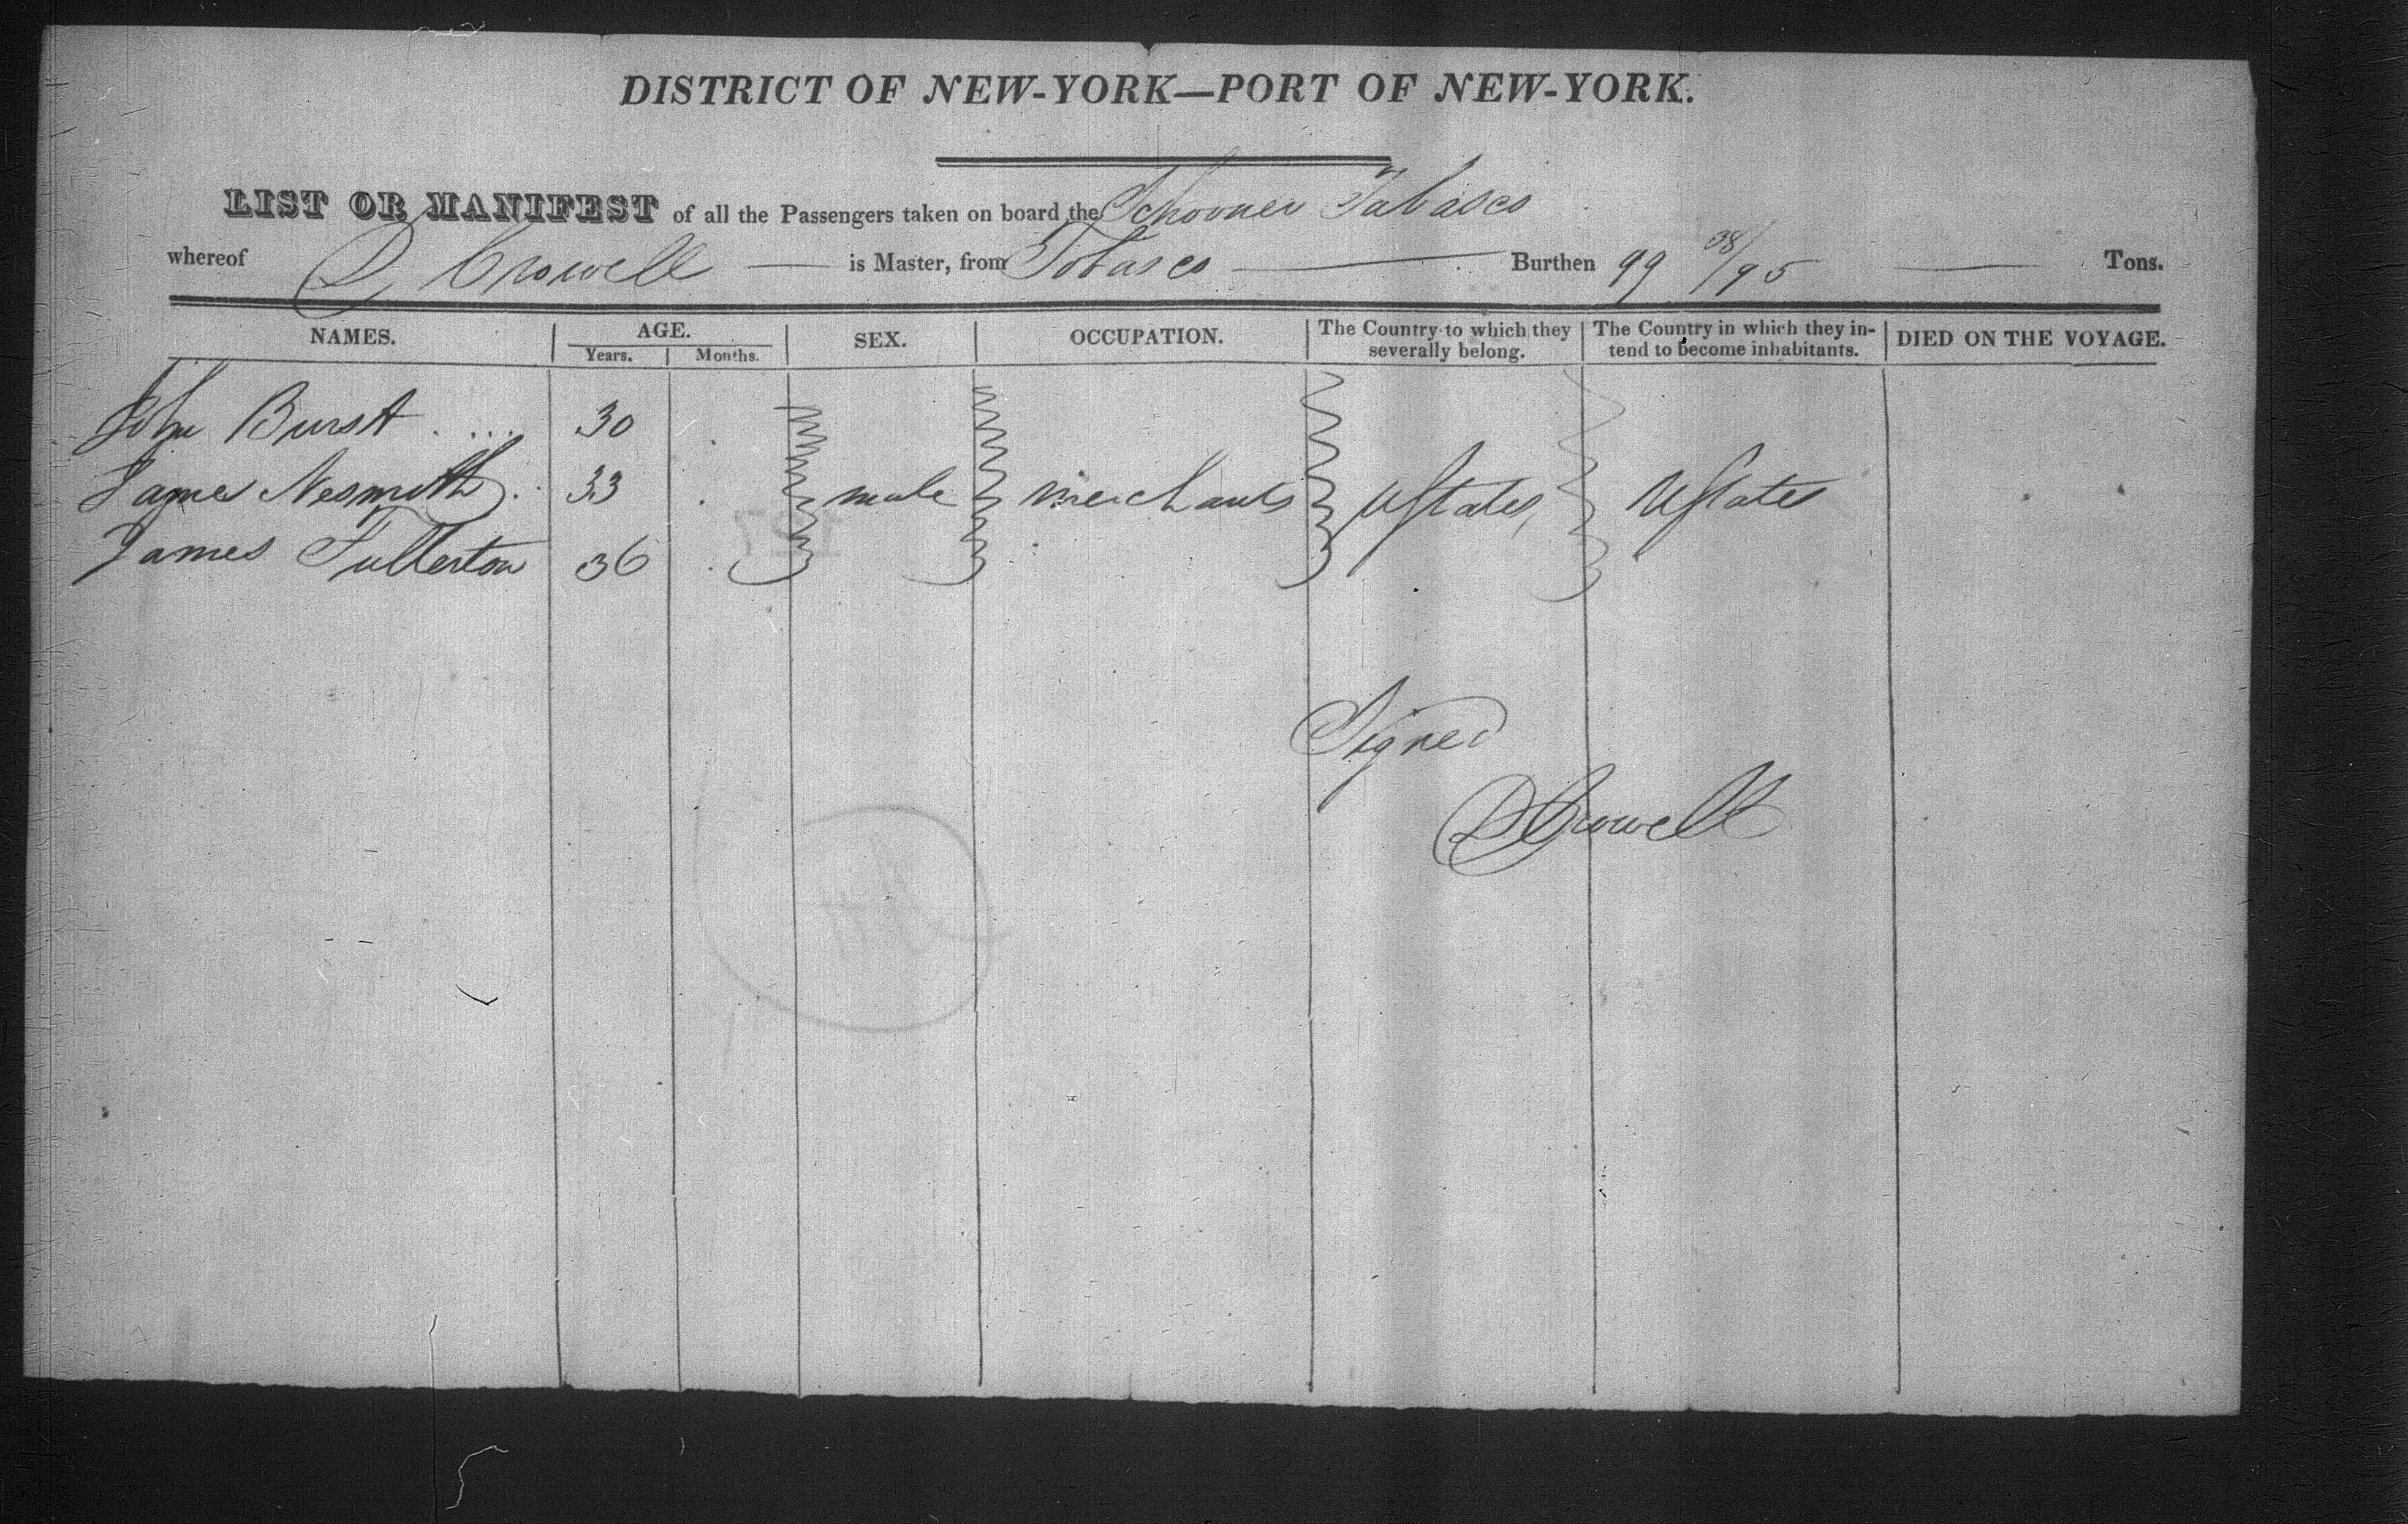 DISTRICT OF NEW-YORK—PORT OF NEW-YORK.
LIST OR MANIFEST of all the Passengers taken on board the Schooner Tabasco
whereof D Crowell — is Master, from Tobasco — Burthen 99 38/95 — Tons.
NAMES. AGE. Years. Months. SEX. OCCUPATION. The Country to which they severally belong. The Country in which they intend to become inhabitants. DIED ON THE VOYAGE.
John Burst 30
James Nesmith 33 male merchants UStates UStates
James Fullerton 36
Signed
D Crowell